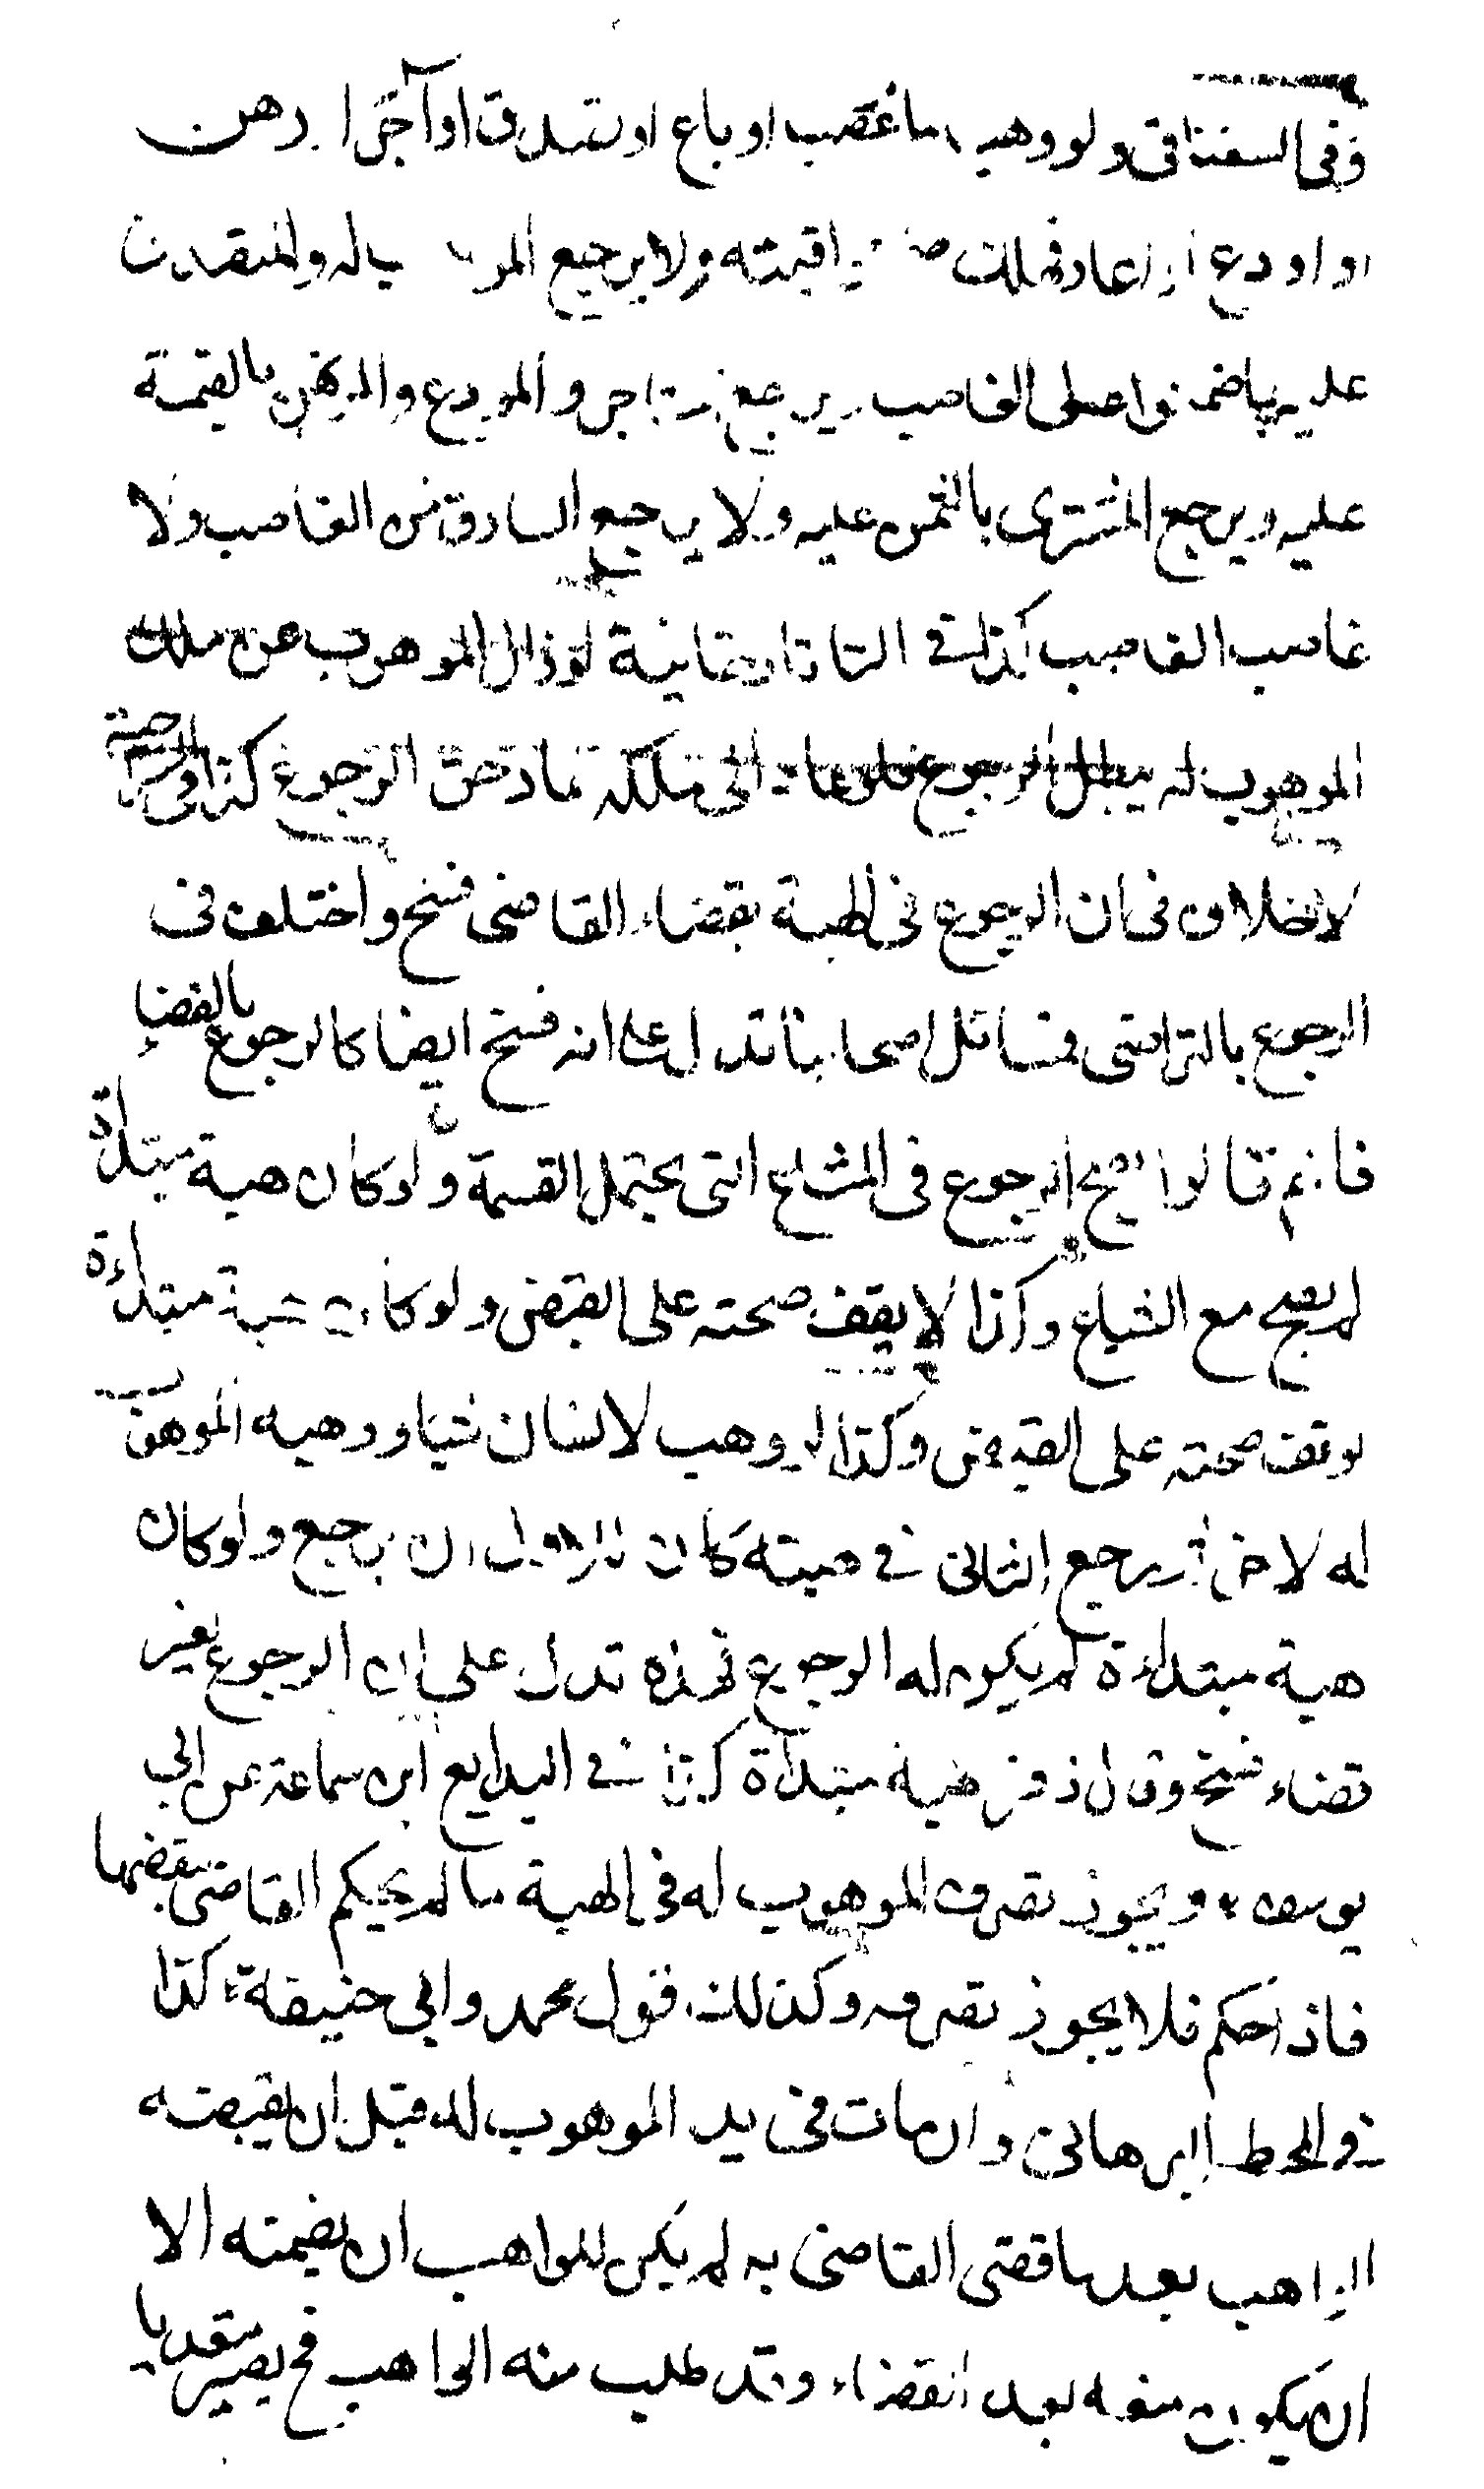 وفى السغناقى ولو وهب ما غصب او باع او تصدق او آجر ا رهن
او اودع او اعار فهلك ضمنوا قيمته ولا يرجع الموهوب له والمتصدق
عليه بما ضمنوا على الغاصب ويرجع المستاجر والمودع والمرتهن بالقيمة
عليه ويرجع المشترى بالثمن عليه ولا يرجع السارق من الغاصب ولا
غاصب الغاصب كذا فى التاتارخانية لو زال الموهوب عن ملك
الموهوب له يبطل الرجوع فلو عاد الى ملكه عاد حق الرجوع كذا فى
لا خلاف فى ان الرجوع فى الهبة بقضاء القاضى فسخ واختلف فى
الرجوع بالتراضى فمسائل اصحابنا تدل على انه فسخ ايضا كالرجوع بالقضاء
فانهم قالوا يصح الرجوع فى المشاع التى يحتمل القسمة ولو كان هبة مبتدأة
لم يصح مع الشياع وكذا لا يقف صحته على القبض ولو كان هبة مبتداءة
لوقف صحته على القبض وكذا لو وهب لانسان شيئا ووهبه الموهوب
له لاخر ثم رجع الثانى فى هبته كان للاول ان يرجع ولو كان
هبة مبتداءة لم يكن له الرجوع فهذه تدل على ان الرجوع بغير
قضاء فسخ وقال زفر هبة مبتدأة كذا فى البدايع ابن سماعة عن ابى
يوسف ويجوز تصرف الموهوب له فى الهبة ما لم يحكم القاضى بنقضها
فاذا حكم فلا يجوز تصرفه وكذلك قول محمد وابى حنيفة كذا
فى المحيط البرهانى وان مات فى يد الموهوب له قبل ان يقبضه
الواهب بعد ما قضى القاضى به لم يكن للواهب ان يضمنه الا
ان يكون منعه بعد القضاء وقد طلب منه الواهب فح يصير متعديا